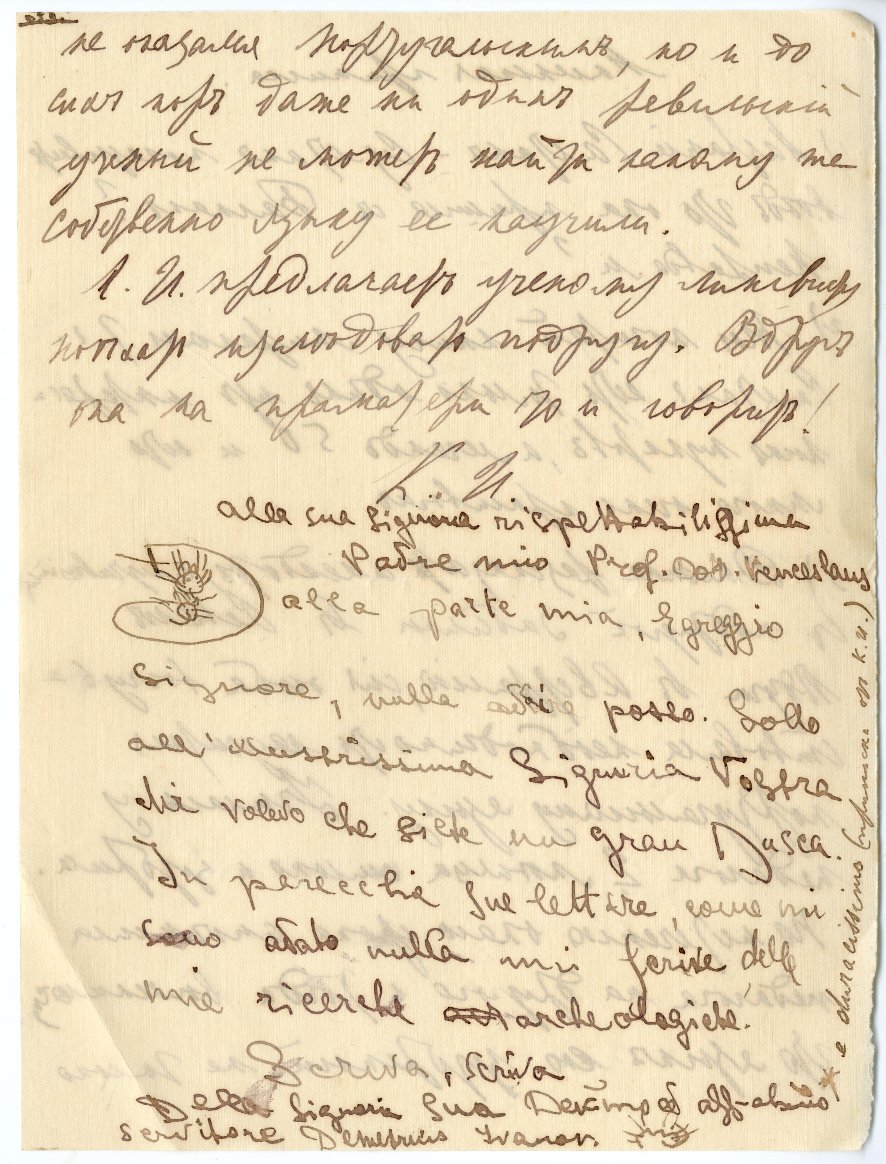 не оказался португальскимъ, но и до
сихъ поръ даже ни одинъ ревельскій
ученый не можетъ найти какому же
собственно языку ее научили.
К. И. предлагаетъ ученому лингвисту
поѣхать изслѣдовать подругу. Вдругъ
она на праматери то и говоритъ!
К И
alla sua Signoria rispettabilissima
Padre mio Prof. Dot. Venceslaus
alla parte mia, Egreggio
Signore, nulla dire posso. Sollo
all'illustrissima Signuria Vostra
di volevo che siete un gran Dusca.
In parecchie sue lettere, come mi
sono adato nulla mi scrive delle
mie ricerche archeologiche.
Scriva, scriva
Della Signoria Sua Dev.mo ed aff-
servitore Demetrius Ivanov.
* e duracissimo (приписка от К.И.)